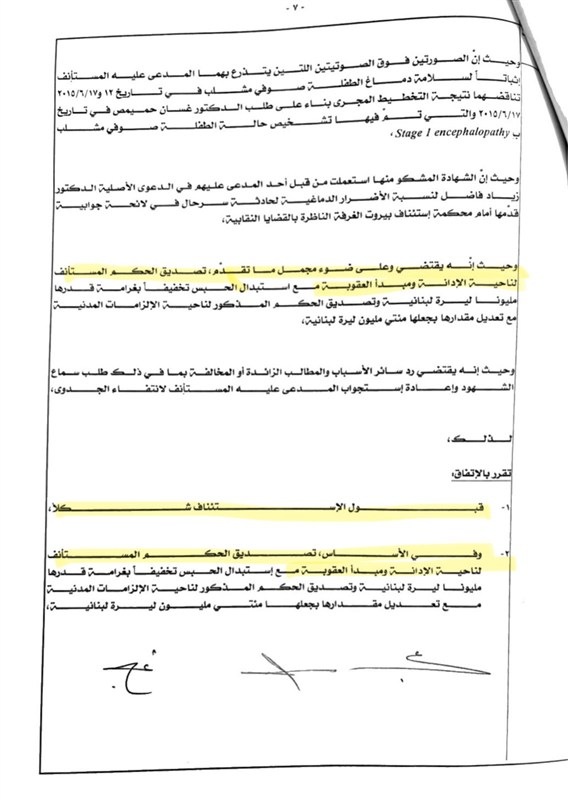 - ٧ -
وحيث إنّ الصورتين فوق الصوتيتين اللتين يتذرع بهما المدعى عليه المستأنف
إثباتاً لسلامة دماغ الطفلة صوفي مشلب في تاريخ ١٢ و٢٠١٥/٦/١٧
تناقضهما نتيجة التخطيط المجرى بناء على طلب الدكتور غسان حميمص في تاريخ
٢٠١٥/٦/١٧ والتي تم فيها تشخيص حالة الطفلة صوفي مشلب
ب Stage 1 encephalopathy،
وحيث إنّ الشهادة المشكو منها استعملت من قبل أحد المدعى عليهم في الدعوى الأصلية الدكتور
زياد فاضل لنسبة الأضرار الدماغية لحادثة سرحال في لائحة جوابية
قدّمها أمام محكمة إستئناف بيروت الغرفة الناظرة بالقضايا النقابية،
وحيث إنّه يقتضي وعلى ضوء مجمل ما تقدّم، تصديق الحكم المستأنف
لناحية الإدانة ومبدأ العقوبة مع استبدال الحبس تخفيفاً بغرامة قدرها
مليونا ليرة لبنانية وتصديق الحكم المذكور لناحية الإلزامات المدنية
مع تعديل مقدارها بجعلها منتي مليون ليرة لبنانية،
وحيث إنه يقتضي رد سائر الأسباب والمطالب الزائدة أو المخالفة بما في ذلك طلب سماع
الشهود وإعادة إستجواب المدعى عليه المستأنف لانتفاء الجدوى،
لذلك،
تقرر بالإتفاق:
١- قبول الإستئناف شكلاً،
٢- وفي الأساس، تصديق الحكم المستأنف
لناحية الإدانة ومبدأ العقوبة مع إستبدال الحبس تخفيفاً بغرامة قدرها
مليونا ليرة لبنانية وتصديق الحكم المذكور لناحية الإلزامات المدنية
مع تعديل مقدارها بجعلها منتي مليون ليرة لبنانية،